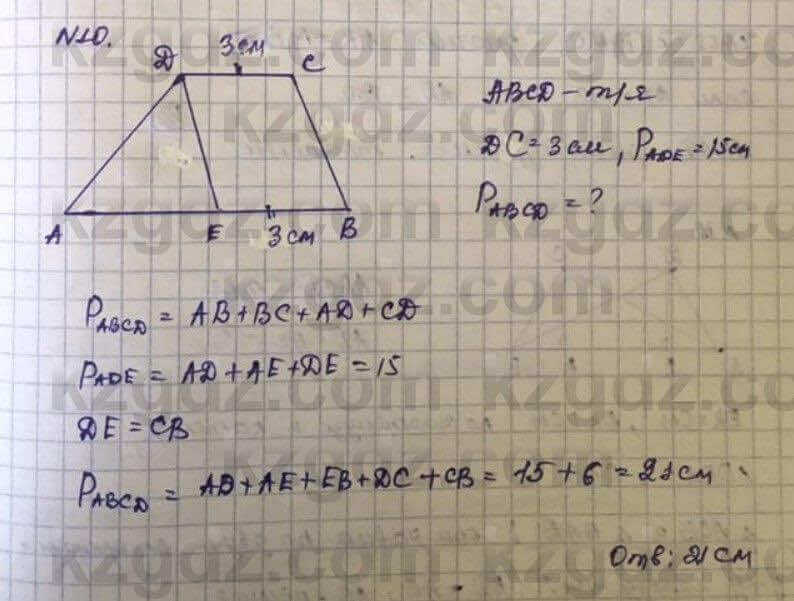 N10.
3 см
D C
A E 3 см B
ABCD - тр/я
DC = 3 см, P_ADE = 15 см
P_ABCD = ?
P_ABCD = AB + BC + AD + CD
P_ADE = AD + AE + DE = 15
DE = CB
P_ABCD = AD + AE + EB + DC + CB = 15 + 6 = 21 см
Отв: 21 см
kzgdz.com